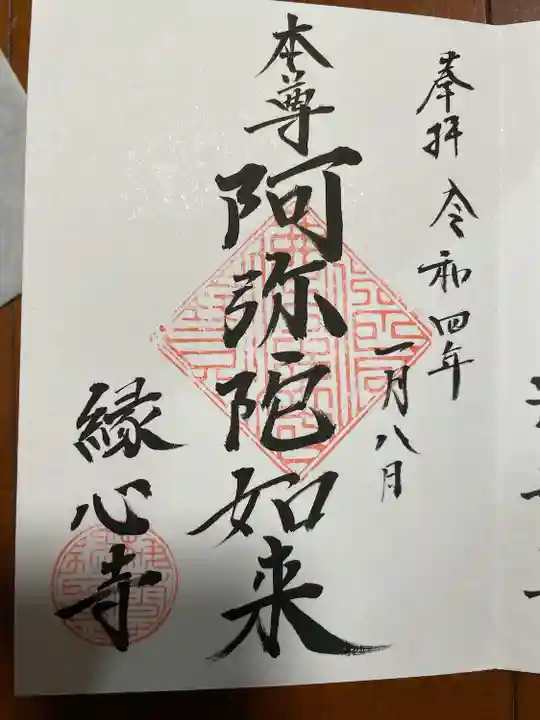 奉拝 令和四年
一月八日
本尊 阿弥陀如来
縁心寺